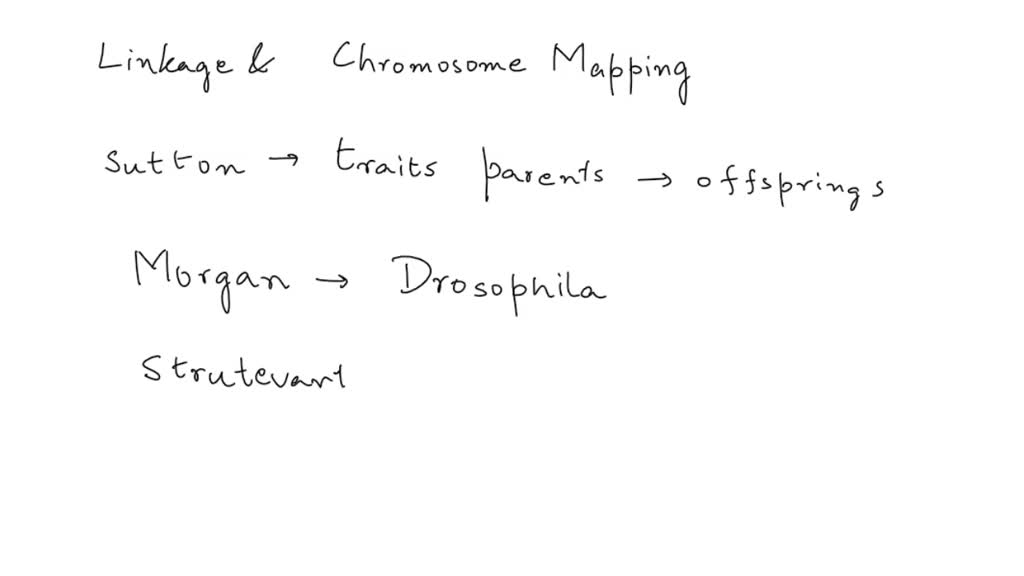 Linkage & Chromosome Mapping
Sutton → traits parents → offsprings
Morgan → Drosophila
Strutevant